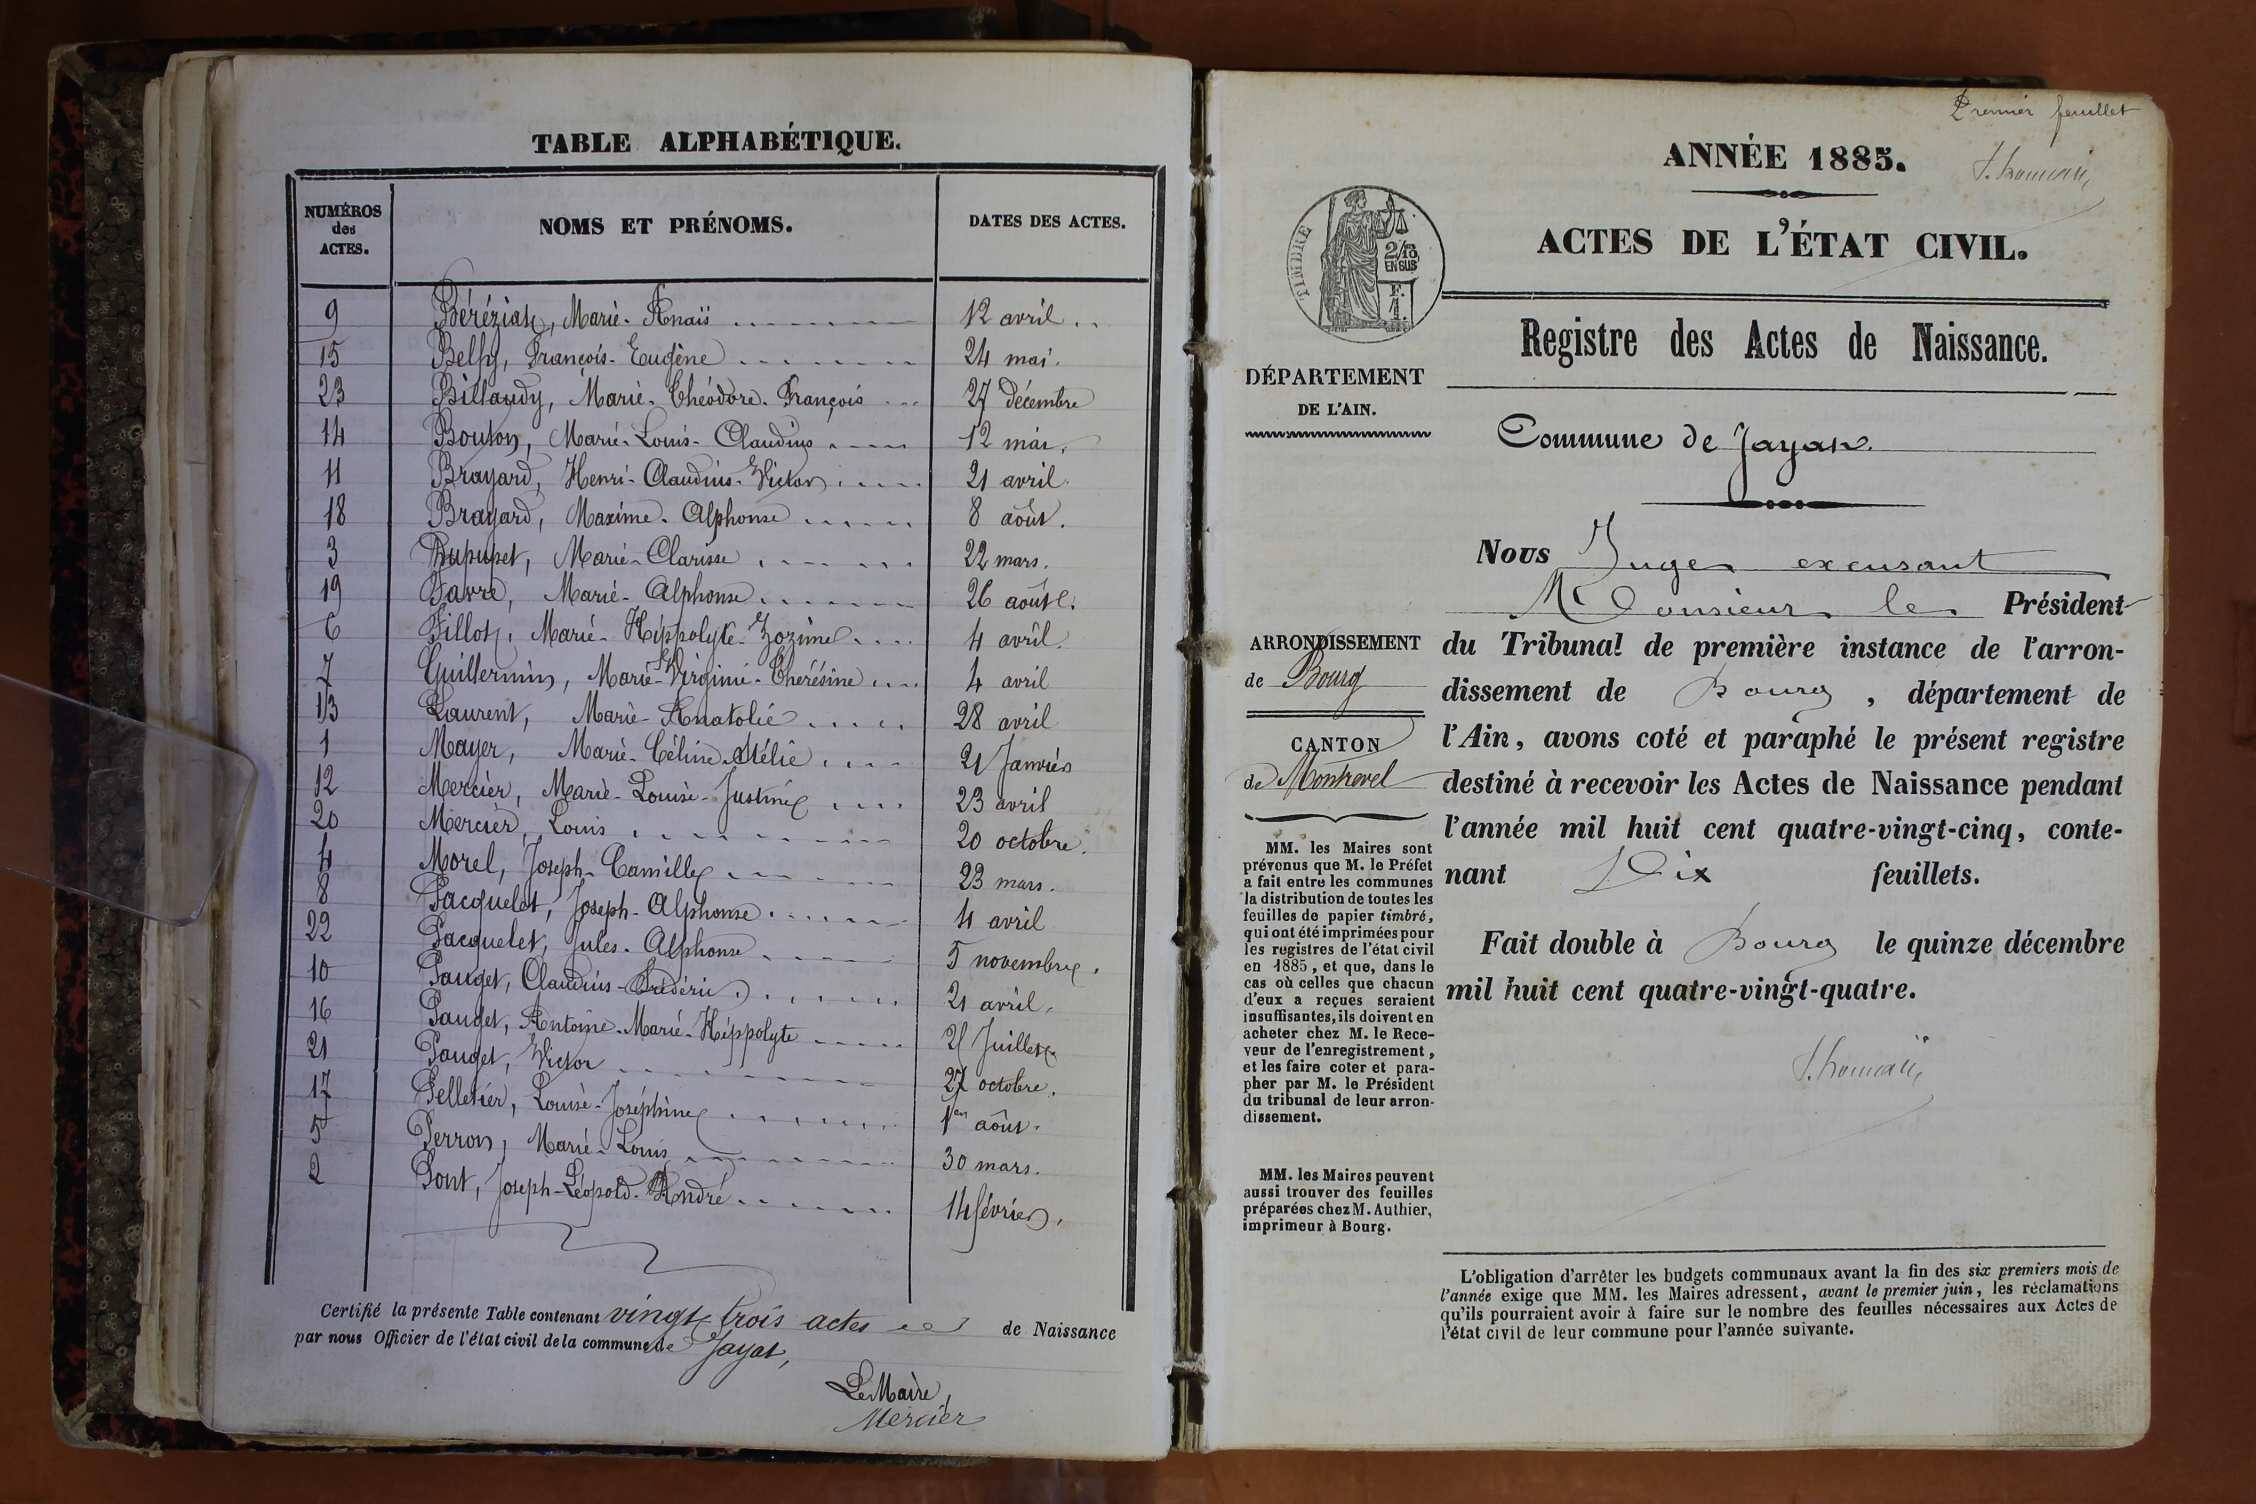 TABLE ALPHABÉTIQUE.
NUMÉROS des ACTES.
NOMS ET PRÉNOMS.
DATES DES ACTES.
9 Béréziat, Marie-Anaïs 12 avril
15 Belhy, François-Eugène 24 mai.
23 Billaudy, Marie-Théodore-François 27 décembre
14 Bouton, Marie-Louis-Claudius 12 mai.
11 Brayard, Henri-Claudius-Victor 21 avril.
18 Brayard, Maxime-Alphonse 8 août.
3 Dupupet, Marie-Clarisse 22 mars.
19 Favre, Marie-Alphonse 26 août.
6 Fillot, Marie-Hippolyte-Zozime 4 avril.
7 Guillermin, Marie-Virginie-Thérésine 4 avril
13 Laurent, Marie-Anatolie 28 avril
1 Mayer, Marie-Céline-Atélie 21 Janvier
12 Mercier, Marie-Louise-Justine 23 avril
20 Mercier, Louis 20 octobre.
4 Morel, Joseph-Camille 23 mars.
8 Pacquelet, Joseph-Alphonse 4 avril
22 Pacquelet, Jules-Alphonse 5 novembre.
10 Pauget, Claudius-Frédéric 21 avril.
16 Pauget, Antoine-Marie-Hippolyte Juillet.
21 Pauget, Victor 27 octobre.
17 Pelletier, Louise-Joséphine 1er août.
5 Perron, Marie-Louis 30 mars.
2 Pont, Joseph-Léopold-André 14 février.
Certifié la présente Table contenant vingt trois actes de Naissance
par nous Officier de l'état civil de la commune de Jayat,
Le Maire,
Mercier
Premier feuillet
ANNÉE 1885.
ACTES DE L'ÉTAT CIVIL.
TIMBRE
2/10
EN SUS
F.
1.
Registre des Actes de Naissance.
DÉPARTEMENT
DE L'AIN.
Commune de Jayat.
Nous Juge excusant
Monsieur le Président
du Tribunal de première instance de l'arron-
dissement de Bourg, département de
l'Ain, avons coté et paraphé le présent registre
destiné à recevoir les Actes de Naissance pendant
l'année mil huit cent quatre-vingt-cinq, conte-
nant Dix feuillets.
Fait double à Bourg le quinze décembre
mil huit cent quatre-vingt-quatre.
ARRONDISSEMENT
de Bourg
CANTON
de Montrevel
MM. les Maires sont
prévenus que M. le Préfet
a fait entre les communes
la distribution de toutes les
feuilles de papier timbré,
qui ont été imprimées pour
les registres de l'état civil
en 1885, et que, dans le
cas où celles que chacun
d'eux a reçues seraient
insuffisantes, ils doivent en
acheter chez M. le Rece-
veur de l'enregistrement,
et les faire coter et para-
pher par M. le Président
du tribunal de leur arron-
dissement.
MM. les Maires peuvent
aussi trouver des feuilles
préparées chez M. Authier,
imprimeur à Bourg.
L'obligation d'arrêter les budgets communaux avant la fin des six premiers mois de
l'année exige que MM. les Maires adressent, avant le premier juin, les réclamations
qu'ils pourraient avoir à faire sur le nombre des feuilles nécessaires aux Actes de
l'état civil de leur commune pour l'année suivante.